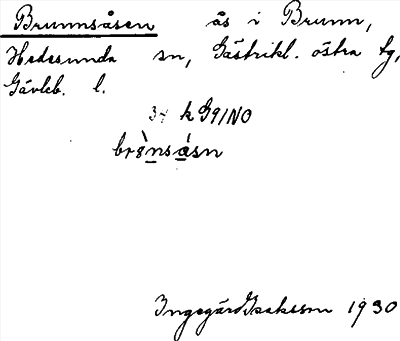 Brunnsåsen ås i Brunn,
Hedesunda sn, Gästrikl. östra tg,
Gävleb. l.
34 k G91NO
brònsásn
Ingegärd Isaksson 1930